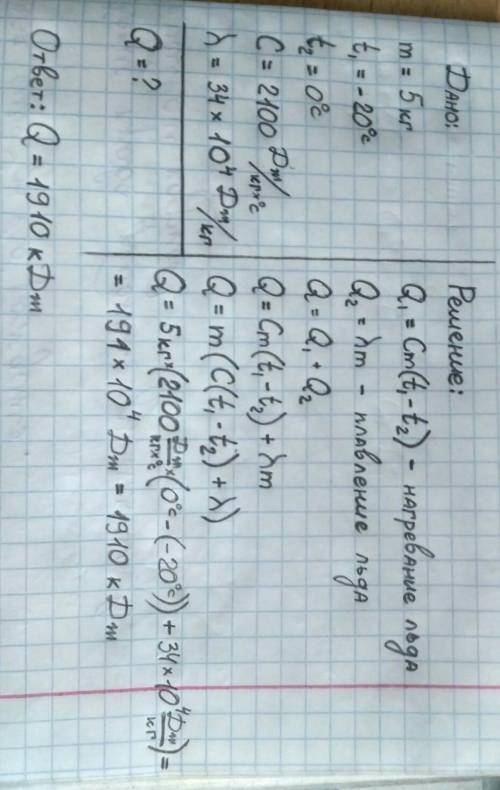 Дано:
m = 5 кг
t₁ = -20°c
t₂ = 0°c
C = 2100 Дж/кг×°c
λ = 34 × 10⁴ Дж/кг
Q = ?
Решение:
Q₁ = Cm(t₁-t₂) - нагревание льда
Q₂ = λm - плавление льда
Q = Q₁ + Q₂
Q = Cm(t₁-t₂) + λm
Q = m(C(t₁-t₂) + λ)
Q = 5кг×(2100 Дж/кг×°c × (0°c-(-20°c)) + 34×10⁴ Дж/кг) =
= 191 × 10⁴ Дж = 1910 кДж
Ответ: Q = 1910 кДж